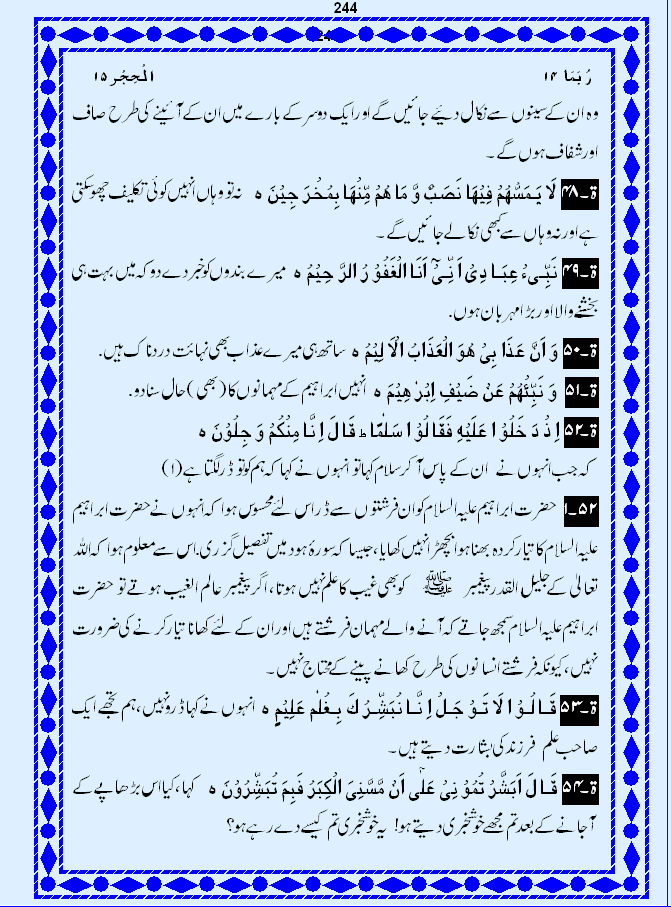 244
رُبَمَا ۱۴ الْحِجْر ۱۵
وہ ان کے سینوں سے نکال دیئے جائیں گے اور ایک دوسرے کے بارے میں ان کے آئینے کی طرح صاف
اور شفاف ہوں گے۔
ۃ۔۴۸ لَا یَمَسُّھُمْ فِیْھَا نَصَبٌ وَّ مَا ھُمْ مِّنْھَا بِمُخْرَ جِیْنَ ہ نہ تو وہاں انہیں کوئی تکلیف چھو سکتی
ہے اور نہ وہاں سے کبھی نکالے جائیں گے۔
ۃ۔۴۹ نَبِّیْءُ عِبَادِیْ اَنِّیْٓ اَنَا الْغَفُوْ رُ الرَّ حِیْمُ ہ میرے بندوں کو خبر دے دو کہ میں بہت ہی
بخشنے والا اور بڑا مہربان ہوں۔
ۃ۔۵۰ وَ اَنَّ عَذَا بِیْ ھُوَ الْعَذَابُ الْاَ لِیْمُ ہ ساتھ ہی میرے عذاب بھی نہائت دردناک ہیں۔
ۃ۔۵۱ وَ نَبِّئْھُمْ عَنْ ضَیْفِ اِبْرٰ ھِیْمَ ہ انہیں ابراہیم کے مہمانوں کا (بھی) حال سنا دو۔
ۃ۔۵۲ اِذْ دَ خَلُوْا عَلَیْہِ فَقَا لُوْا سَلٰمًا ط قَالَ اِنَّا مِنْکُمْ وَ جِلُوْنَ ہ
کہ جب انہوں نے ان کے پاس آکر سلام کہا تو انہوں نے کہا کہ ہم کو تو ڈر لگتا ہے (۱)
۵۲۔۱ حضرت ابراہیم علیہ السلام کو ان فرشتوں سے ڈر اس لئے محسوس ہوا کہ انہوں نے حضرت ابراہیم
علیہ السلام کا تیار کردہ بھنا ہوا بچھڑا نہیں کھایا، جیسا کہ سورۂ ہود میں تفصیل گزری۔ اس سے معلوم ہوا کہ اللہ
تعالٰی کے جلیل القدر پیغمبر ﷺ کو بھی غیب کا علم نہیں ہوتا، اگر پیغمبر عالم الغیب ہوتے تو حضرت
ابراہیم علیہ السلام سمجھ جاتے کہ آنے والے مہمان فرشتے ہیں اور ان کے لئے کھانا تیار کرنے کی ضرورت
نہیں، کیونکہ فرشتے انسانوں کی طرح کھانے پینے کے محتاج نہیں۔
ۃ۔۵۳ قَا لُوْا لَا تَوْ جَلْ اِنَّا نُبَشِّرُ کَ بِغُلٰمٍ عَلِیْمٍ ہ انہوں نے کہا ڈرو نہیں، ہم تجھے ایک
صاحب علم فرزند کی بشارت دیتے ہیں۔
ۃ۔۵۴ قَالَ اَبَشَّرْ تُمُوْ نِیْ عَلٰٓی اَنْ مَّسَّنِیَ الْکِبَرُ فَبِمَ تُبَشِّرُوْنَ ہ کہا، کیا اس بڑھاپے کے
آجانے کے بعد تم مجھے خوشخبری دیتے ہو! یہ خوشخبری تم کیسے دے رہے ہو؟